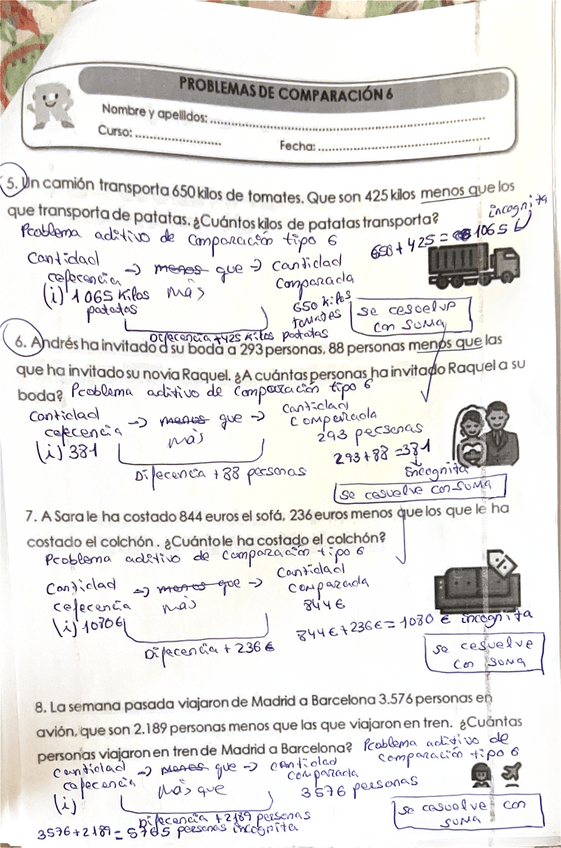 PROBLEMAS DE COMPARACIÓN 6
Nombre y apellidos: ........................
Curso: ........................ Fecha: ........................
5. Un camión transporta 650 kilos de tomates. Que son 425 kilos menos que los
que transporta de patatas. ¿Cuántos kilos de patatas transporta?
incognita
Problema aditivo de comparación tipo 6
650 + 425 = 1065
Cantidad → menos que → Cantidad
referencia más comparada
(i) 1065 kilos patatas
650 kilos tomates
Diferencia + 425 kilos patatas
se resuelve con suma
6. Andrés ha invitado a su boda a 293 personas, 88 personas menos que las
que ha invitado su novia Raquel. ¿A cuántas personas ha invitado Raquel a su
boda? Problema aditivo de comparación tipo 6
Cantidad → menos que → Cantidad
referencia más comparada
(i) 381
293 personas
293 + 88 = 381
incognita
Diferencia + 88 personas
se resuelve con suma
7. A Sara le ha costado 844 euros el sofá, 236 euros menos que los que le ha
costado el colchón . ¿Cuánto le ha costado el colchón?
Problema aditivo de comparación tipo 6
Cantidad → menos que → Cantidad
referencia más comparada
(i) 1080€
844€
844€ + 236€ = 1080 € incognita
Diferencia + 236€
se resuelve con suma
8. La semana pasada viajaron de Madrid a Barcelona 3.576 personas en
avión, que son 2.189 personas menos que las que viajaron en tren. ¿Cuántas
personas viajaron en tren de Madrid a Barcelona? Problema aditivo de
comparación tipo 6
cantidad → menos que → cantidad
referencia más que comparada
(i) 3576 personas
Diferencia + 2189 personas
3576 + 2189 = 5765 personas incognita
se resuelve con suma